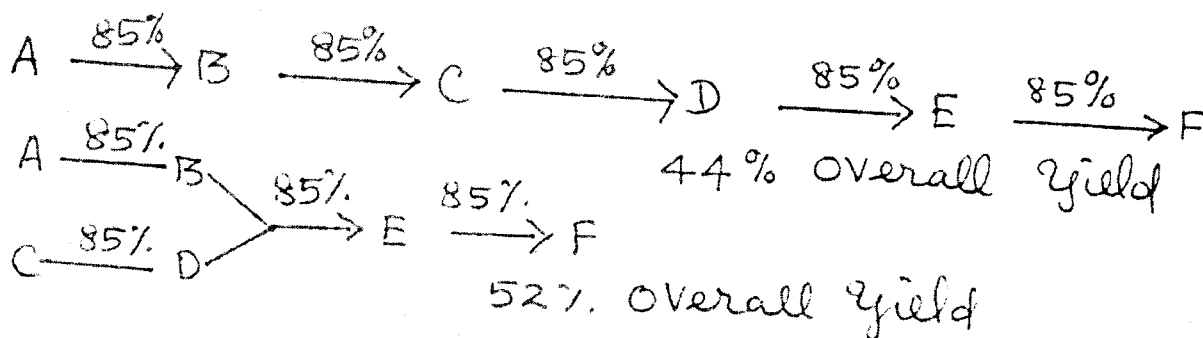 A 85% B 85% C 85% D 85% E 85% F
44% Overall Yield
A 85% B 85% E 85% F
C 85% D
52% Overall Yield